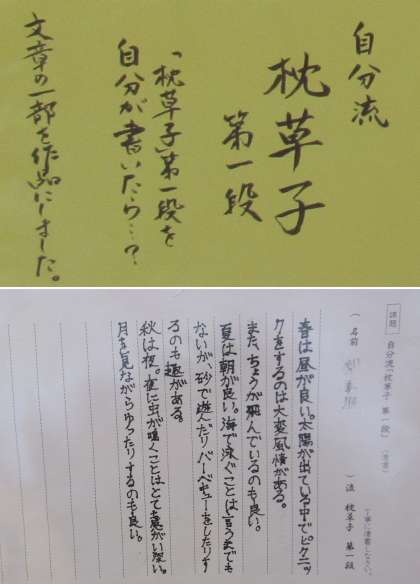 自分流
枕草子
第一段
「枕草子」第一段を
自分が書いたら…？
文章の一部を作品にしました。
課題 自分流「枕草子 第一段」（清書）
丁寧に清書しなさい。
（名前
）流 枕草子 第一段
春は昼が良い。太陽が出ている中でピクニッ
クをするのは大変風情がある。
また、ちょうが飛んでいるのも良い。
夏は朝が良い。海で泳ぐことは言うまでも
ないが、砂で遊んだりバーベキューをしたりす
るのも趣がある。
秋は夜。夜に虫が鳴くことはとても趣が深い。
月を見ながらゆったりするのも良い。